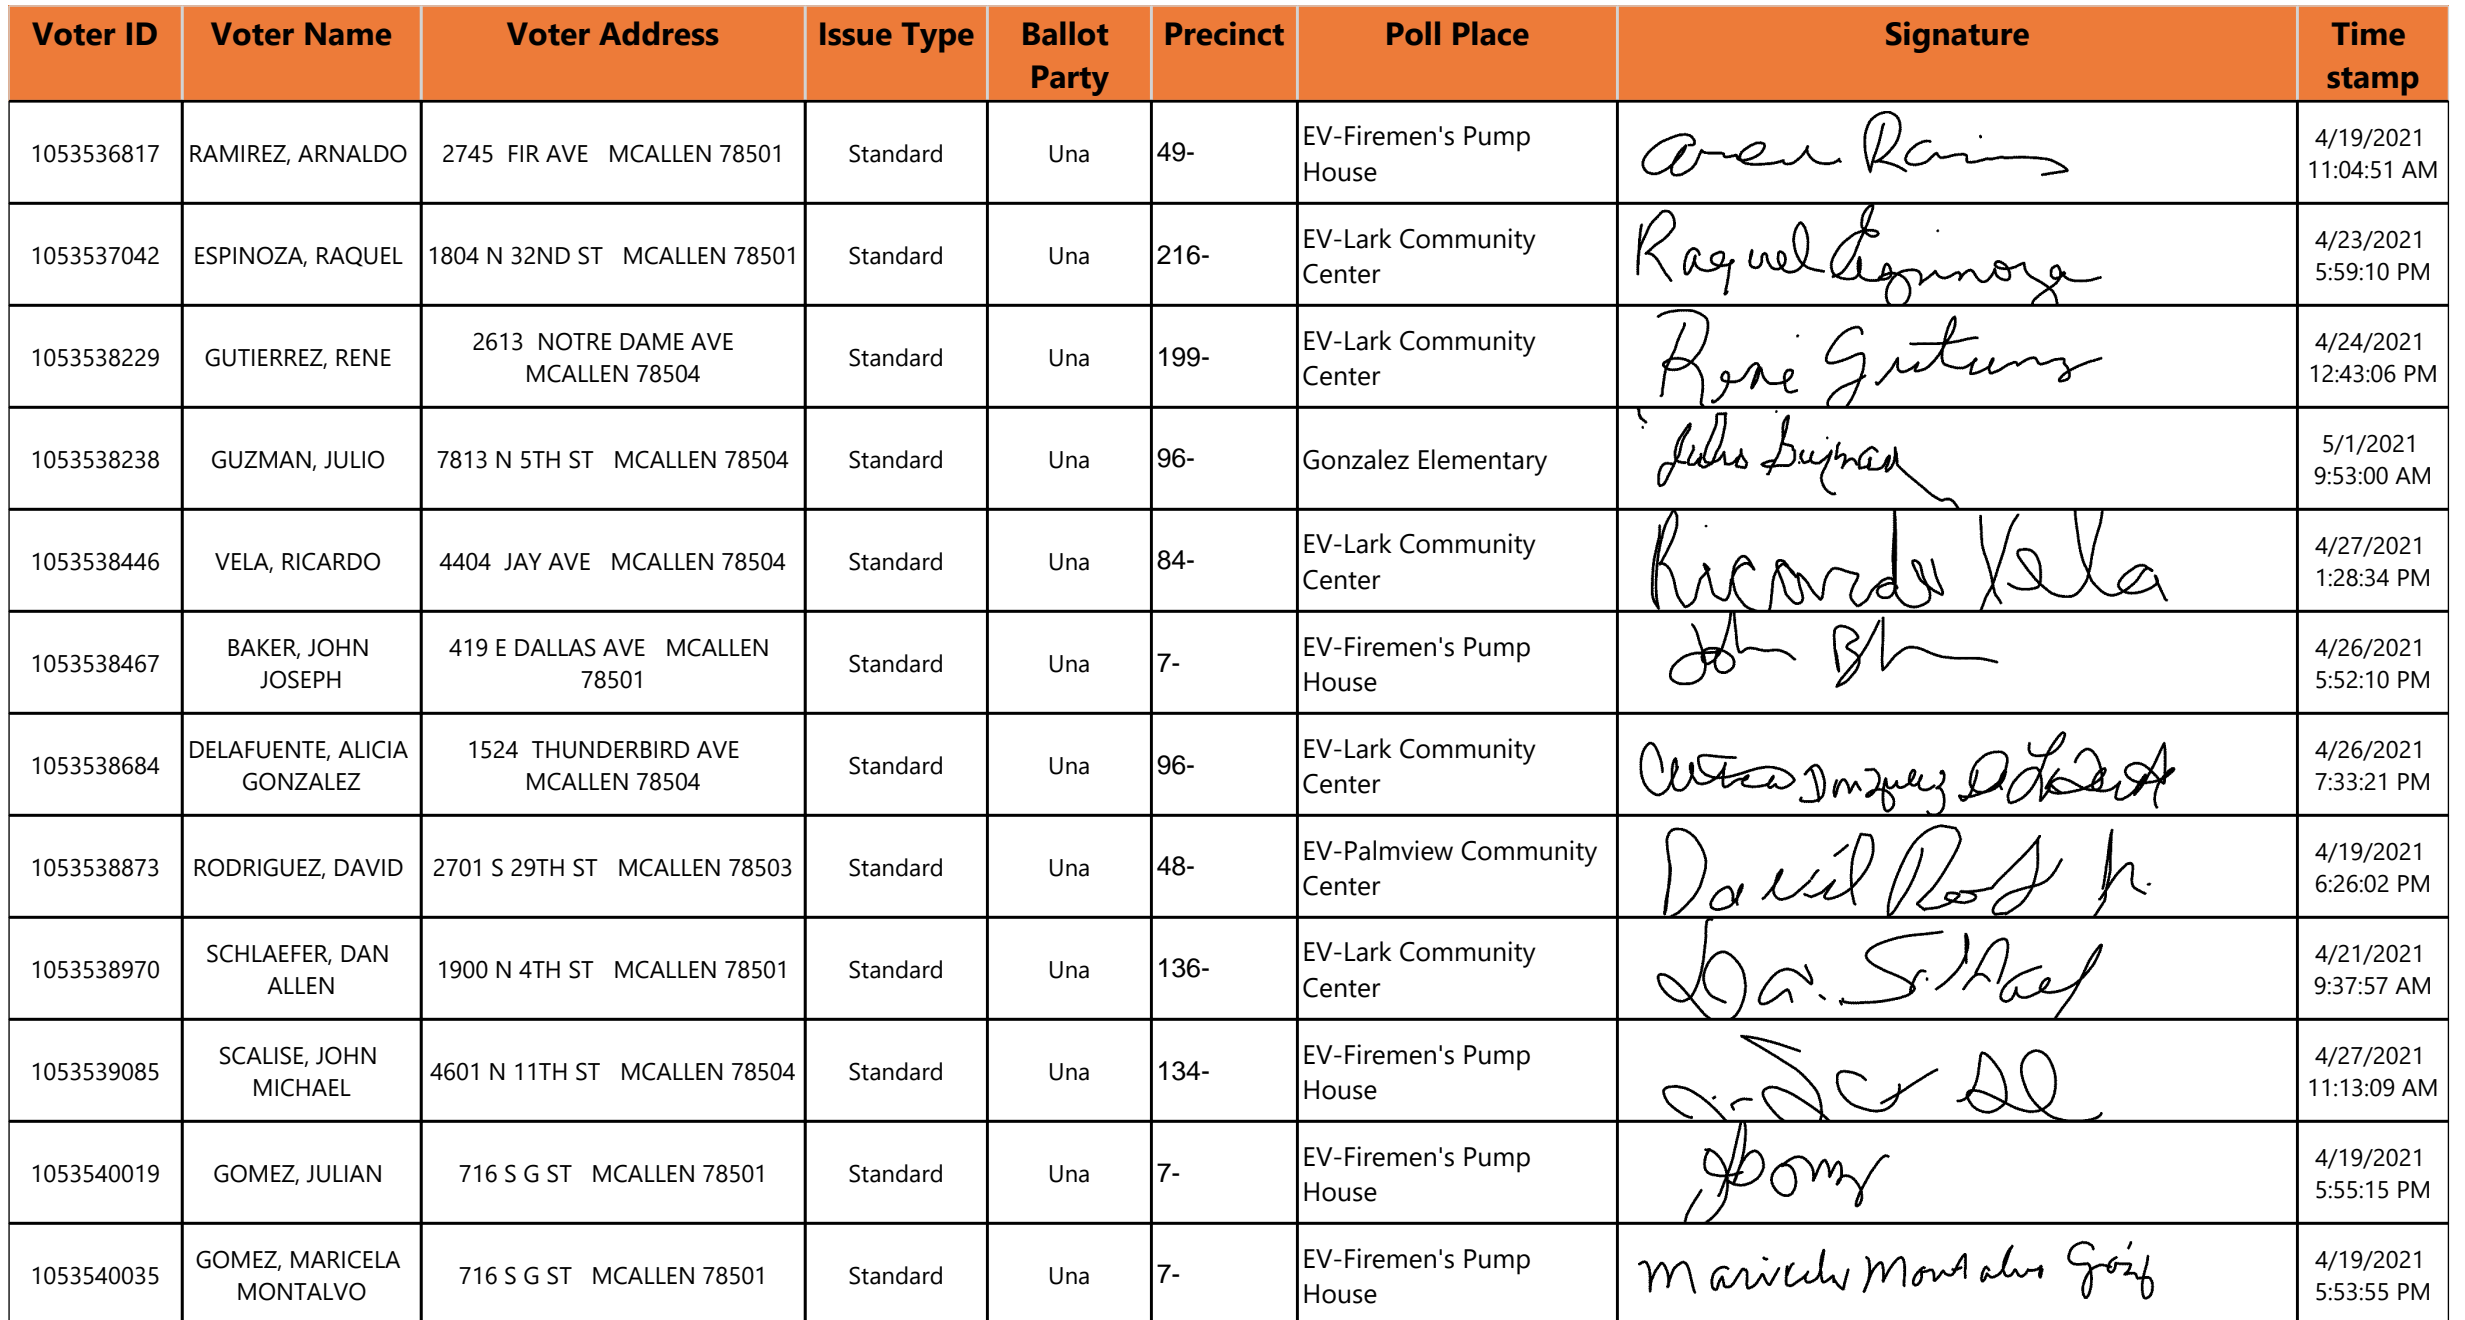 Voter ID Voter Name Voter Address Issue Type Ballot Party Precinct Poll Place Signature Time stamp
1053536817 RAMIREZ, ARNALDO 2745 FIR AVE MCALLEN 78501 Standard Una 49- EV-Firemen's Pump House 4/19/2021 11:04:51 AM
1053537042 ESPINOZA, RAQUEL 1804 N 32ND ST MCALLEN 78501 Standard Una 216- EV-Lark Community Center Raquel Espinoza 4/23/2021 5:59:10 PM
1053538229 GUTIERREZ, RENE 2613 NOTRE DAME AVE MCALLEN 78504 Standard Una 199- EV-Lark Community Center Rene 4/24/2021 12:43:06 PM
1053538238 GUZMAN, JULIO 7813 N 5TH ST MCALLEN 78504 Standard Una 96- Gonzalez Elementary Julio Guzman 5/1/2021 9:53:00 AM
1053538446 VELA, RICARDO 4404 JAY AVE MCALLEN 78504 Standard Una 84- EV-Lark Community Center Ricardo Vela 4/27/2021 1:28:34 PM
1053538467 BAKER, JOHN JOSEPH 419 E DALLAS AVE MCALLEN 78501 Standard Una 7- EV-Firemen's Pump House John 4/26/2021 5:52:10 PM
1053538684 DELAFUENTE, ALICIA GONZALEZ 1524 THUNDERBIRD AVE MCALLEN 78504 Standard Una 96- EV-Lark Community Center 4/26/2021 7:33:21 PM
1053538873 RODRIGUEZ, DAVID 2701 S 29TH ST MCALLEN 78503 Standard Una 48- EV-Palmview Community Center David Jr. 4/19/2021 6:26:02 PM
1053538970 SCHLAEFER, DAN ALLEN 1900 N 4TH ST MCALLEN 78501 Standard Una 136- EV-Lark Community Center 4/21/2021 9:37:57 AM
1053539085 SCALISE, JOHN MICHAEL 4601 N 11TH ST MCALLEN 78504 Standard Una 134- EV-Firemen's Pump House 4/27/2021 11:13:09 AM
1053540019 GOMEZ, JULIAN 716 S G ST MCALLEN 78501 Standard Una 7- EV-Firemen's Pump House 4/19/2021 5:55:15 PM
1053540035 GOMEZ, MARICELA MONTALVO 716 S G ST MCALLEN 78501 Standard Una 7- EV-Firemen's Pump House Maricela Montalvo Gómez 4/19/2021 5:53:55 PM